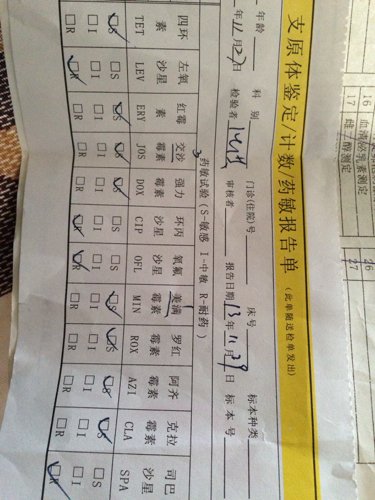 16 血清泌乳素测定 26
17 27
支原体鉴定/计数/药敏报告单 (此单随送检单发出)
年龄 科别 门诊(住院)号 床号 标本种类
年11月27日 检验者 审核者 报告日期 13年11月29日 标本号
药敏试验(S-敏感 I-中敏 R-耐药)
四环 左氧 红霉 交沙 强力 环丙 氧氟 美满 罗红 阿齐 克拉 司巴
素 沙星 素 霉素 霉素 沙星 沙星 霉素 霉素 霉素 霉素 沙星
TET LEV ERY JOS DOX CIP OFL MIN ROX AZI CLA SPA
□S □S □S □S □S □S □S □S □S □S □S □S
□I □I □I □I □I □I □I □I □I □I □I □I
□R □R □R □R □R □R □R □R □R □R □R □R